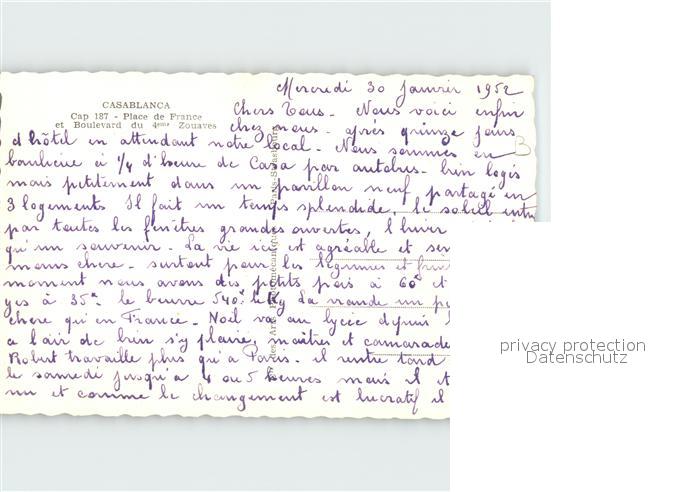 Mercredi 30 Janvier 1952
CASABLANCA
Cap 187 - Place de France
et Boulevard du 4eme Zouaves
Chers Tous. Nous voici enfin
chez nous. après quinze jours
d'hôtel en attendant notre local. Nous sommes en
banlieue à 1/4 d'heure de Casa par autobus. bien logés
mais petitement dans un pavillon neuf partagé en
3 logements Il fait un temps splendide. le soleil entre
par toutes les fenêtres grandes ouvertes, l'hiver
qu'un souvenir. La vie ici est agréable et
moins chere. surtout pour les légumes et
moment nous avons des petits pois à 60 et
à 35. le beurre 540 le Kg La viande un
chere qu'en France. Noël va au lycée depuis
a l'air de bien s'y plaire, maîtres et camarade
Robert travaille plus qu'à Paris. il rentre tard
le samedi jusqu'à 4 ou 5 heures mais il
et comme le changement est lucratif il
B
privacy protection
Datenschutz